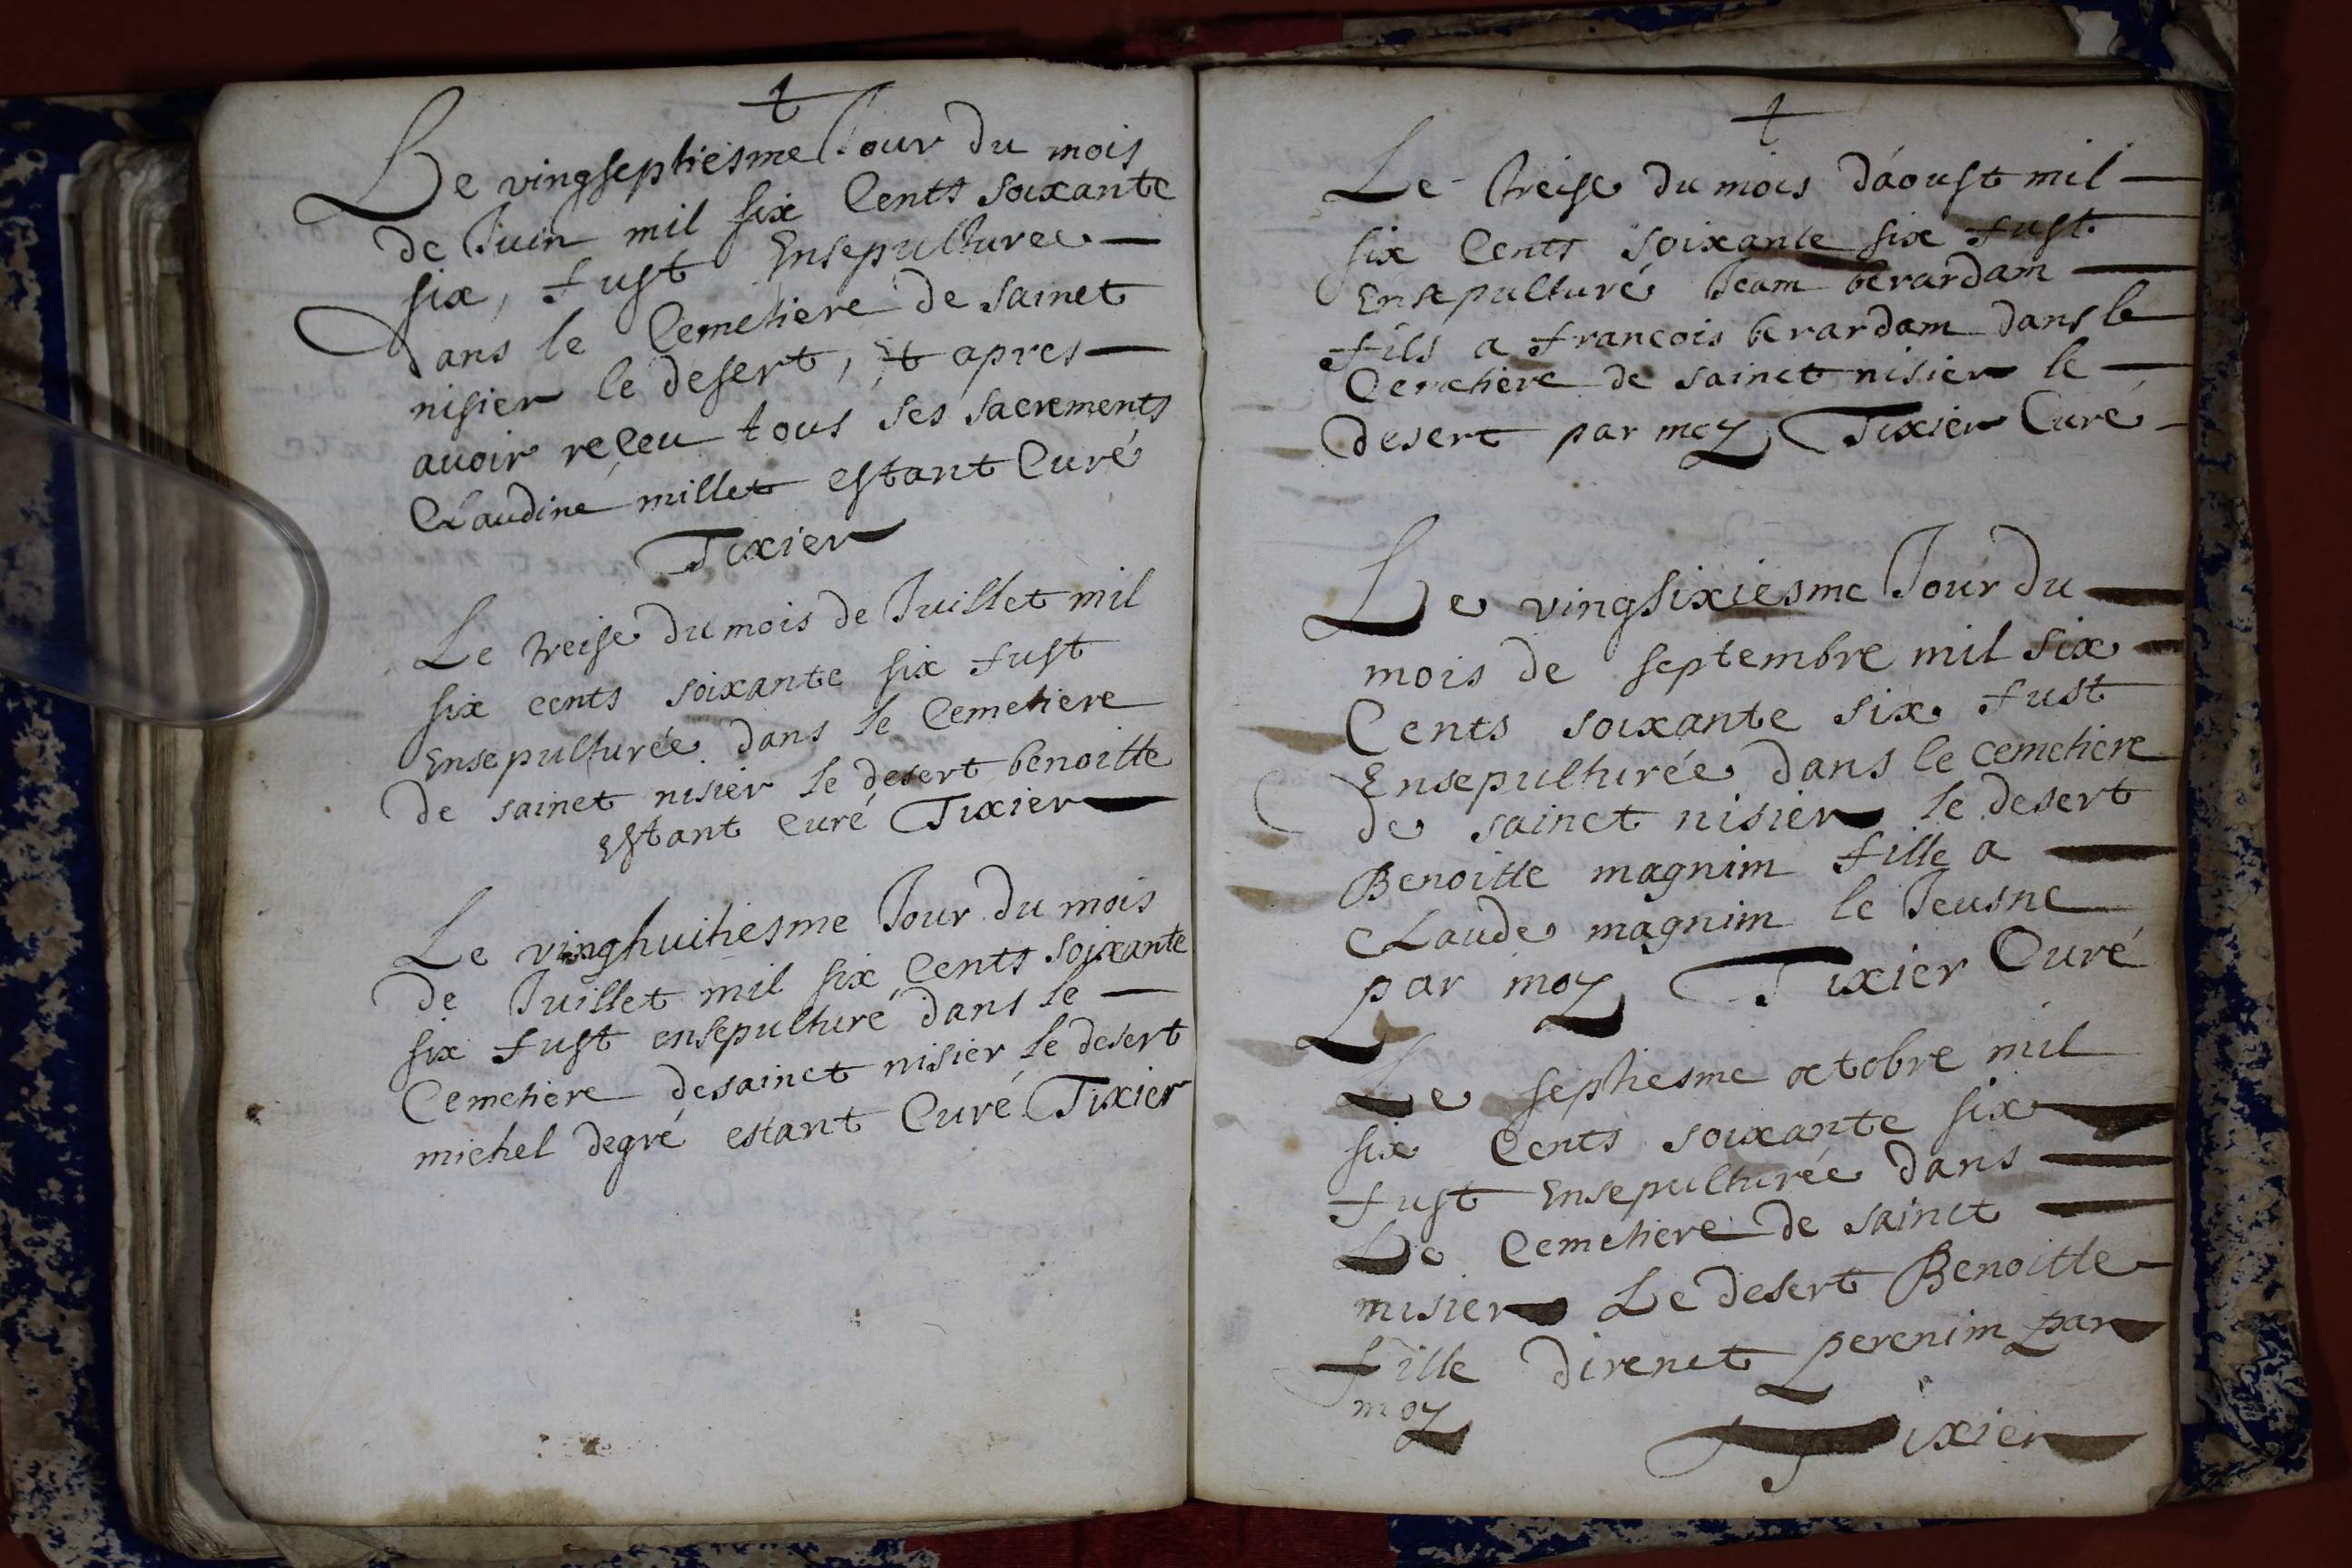 Le vingseptiesme Jour du mois
de Juin mil six Cents soixante
six, fust Ensepulturee
dans le Cemetiere de sainct
nisier le desert, Et apres
avoir reçeu tous ses sacrements
Claudine millet estant Curé
Tixier
Le treise du mois de Juillet mil
six cents soixante six fust
Ensepulturée dans le Cemetiere
de sainct nisier le desert benoitte
estant curé Tixier
Le vinghuitiesme Jour du mois
de Juillet mil six Cents soixante
six fust ensepulturé dans le
Cemetiere de sainct nisier le desert
michel degré estant Curé Tixier
Le treise du mois d'aoust mil
six Cents soixante six fust
Ensepulturé Jeam berardam
fils a francois berardam dans le
Cemetiere de sainct nisier le
desert par moy Tixier Curé
Le vingsixiesme Jour du
mois de septembre mil six
Cents soixante six fust
Ensepulturée dans le cemetiere
de sainct nisier le desert
Benoitte magnim fille a
Claude magnim le Jeusne
par moy Tixier Curé
Le septiesme octobre mil
six Cents soixante six
fust Ensepulturée dans
Le Cemetiere de sainct
nisier Le desert Benoitte
fille direnet perenim par
moy
Tixier